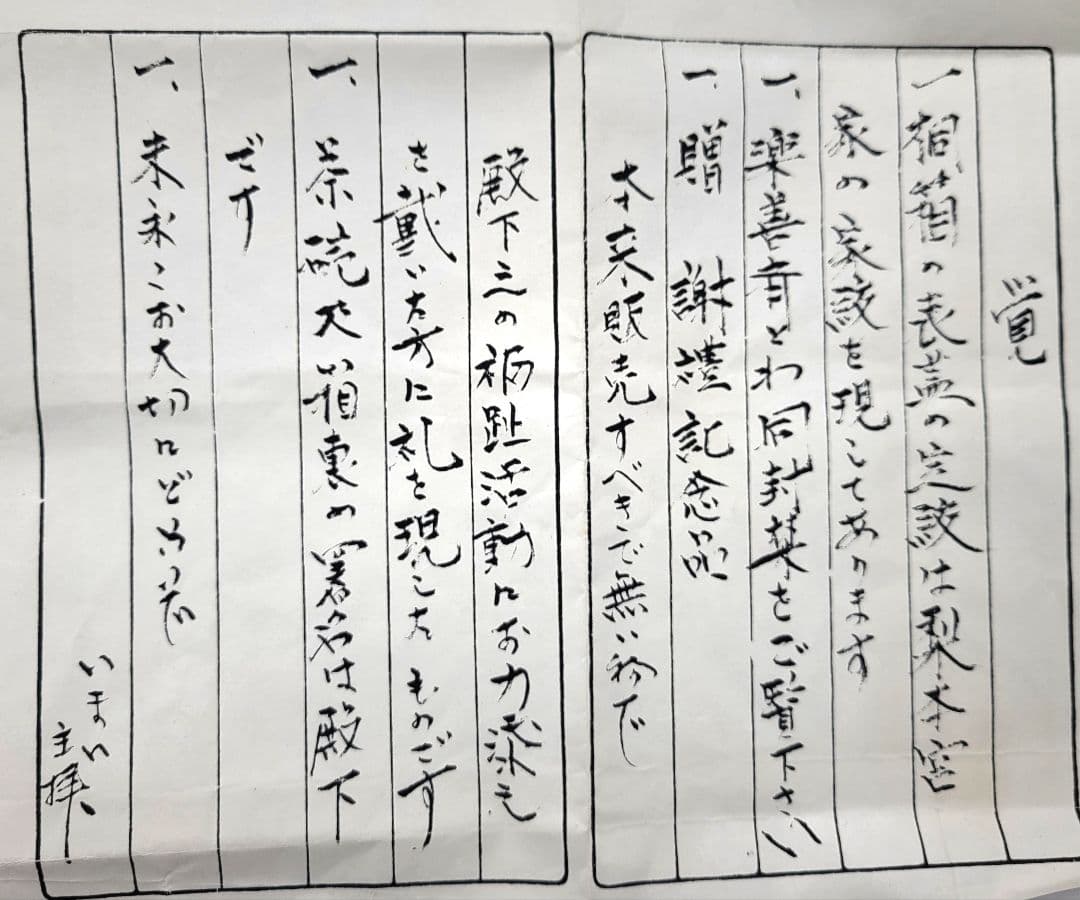 覚
一 桐箱の表蓋の定紋は梨本宮
家の家紋を現してあります
一、楽善斉とわ同封栞をご覧下さい
一、贈 謝禮記念品
本来販売すべきで無い物で
殿下三の福祉活動にお力添え
を戴いた方に礼を現したものです
一、茶碗及い箱裏の署名は殿下
です
一、末永くお大切にどうぞ
いまい
主拝